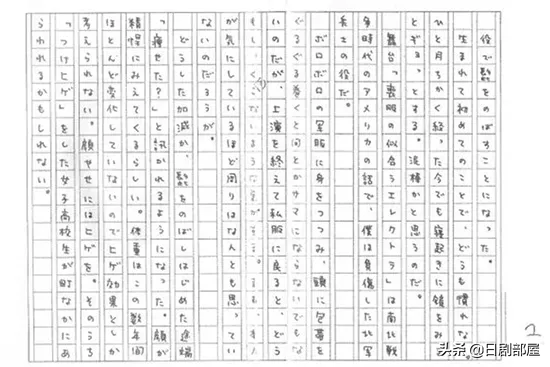 役で髭をのばすことになった。
生まれて初めてのことで、どうも慣れない。
ひと月ちかく経った今でも寝起きに鏡を
かと思うのだ。
舞台「喪服の似合うエレクトラ」は南北戦
争時代のアメリカの話で、僕は負傷した北軍
兵士の役だ。
ボロボロの軍服に身をつつみ、頭に包帯を
ぐるぐる巻くと何とかサマにならないでもな
いのだが、上演を終えて私服に戻ると、どう
が気にしているほど周りはなんとも思ってい
ないのだろうが。
どうした加減か、髭をのばしはじめた途端
「痩せた？」と訊かれるようになった。顔が
精悍にみえてくるらしい。体重はこの数年間
ほとんど変化していないのでヒゲ効果としか
考えられない。顔やせにはヒゲを。そのうち
"つけヒゲ"をした女子高校生が町なかにあ
らわれるかもしれない。
2
头条 @日剧部屋